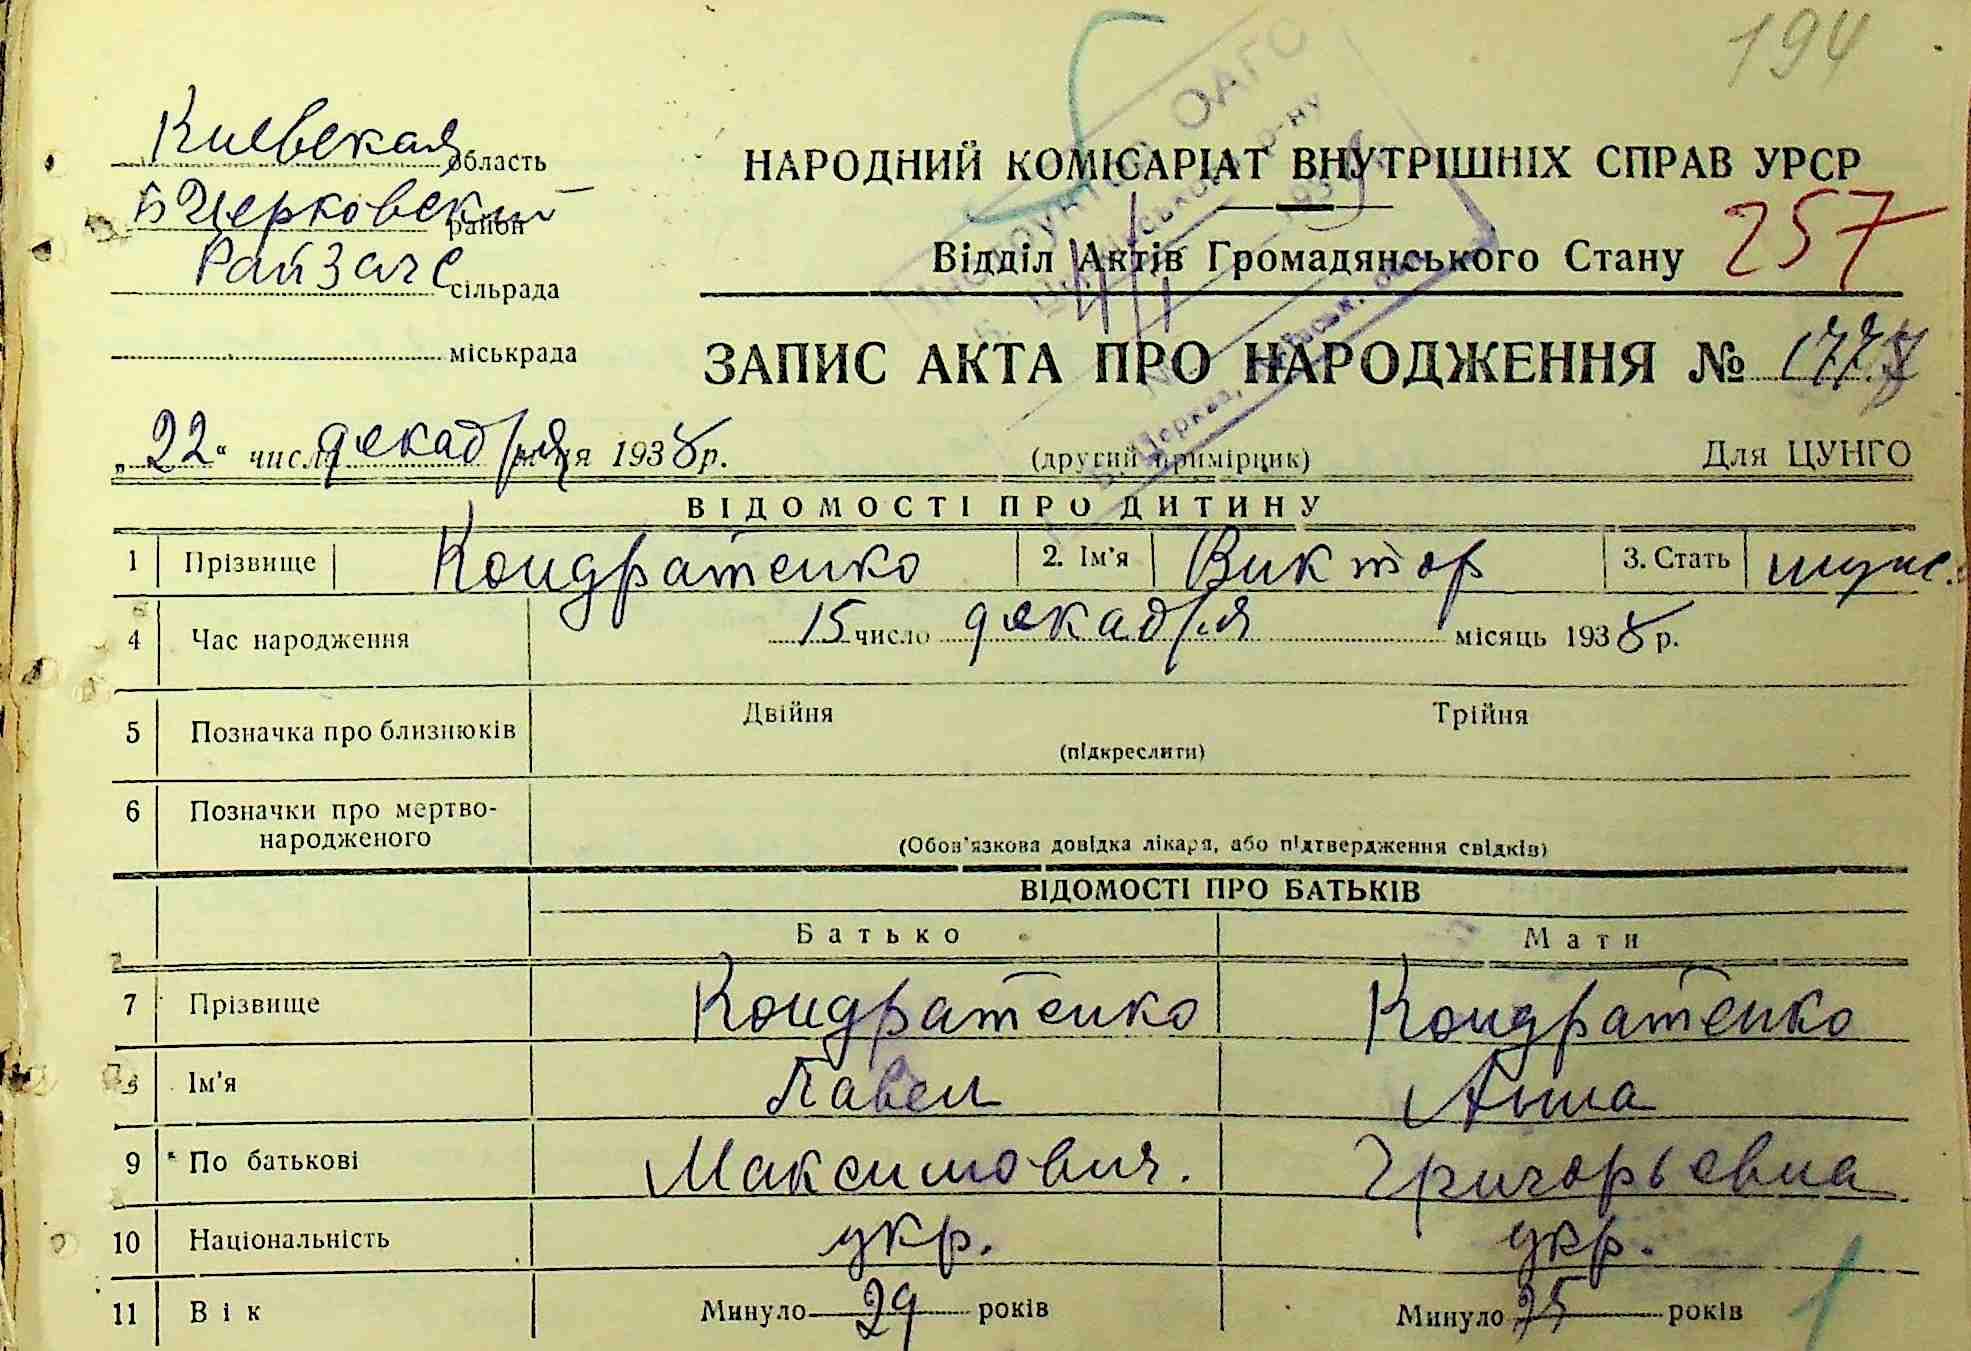 194
Киевская область
Б Церковский район
Райзагс сільрада
міськрада
НАРОДНИЙ КОМІСАРІАТ ВНУТРІШНІХ СПРАВ УРСР
Відділ Актів Громадянського Стану 257
ЗАПИС АКТА ПРО НАРОДЖЕННЯ №
„22“ число декабря місяця 1938 р.
(другий примірник) Для ЦУНГО
ВІДОМОСТІ ПРО ДИТИНУ
1 Прізвище Кондратенко 2. Ім'я Виктор 3. Стать муж.
4 Час народження 15 число декабря місяць 1938 р.
5 Позначка про близнюків Двійня Трійня
(підкреслити)
6 Позначки про мертво-
народженого
(Обов'язкова довідка лікаря, або підтвердження свідків)
ВІДОМОСТІ ПРО БАТЬКІВ
Батько Мати
7 Прізвище Кондратенко Кондратенко
8 Ім'я Павел Анна
9 По батькові Максимович. Григорьевна
10 Національність укр. укр.
11 Вік Минуло 29 років Минуло 25 років